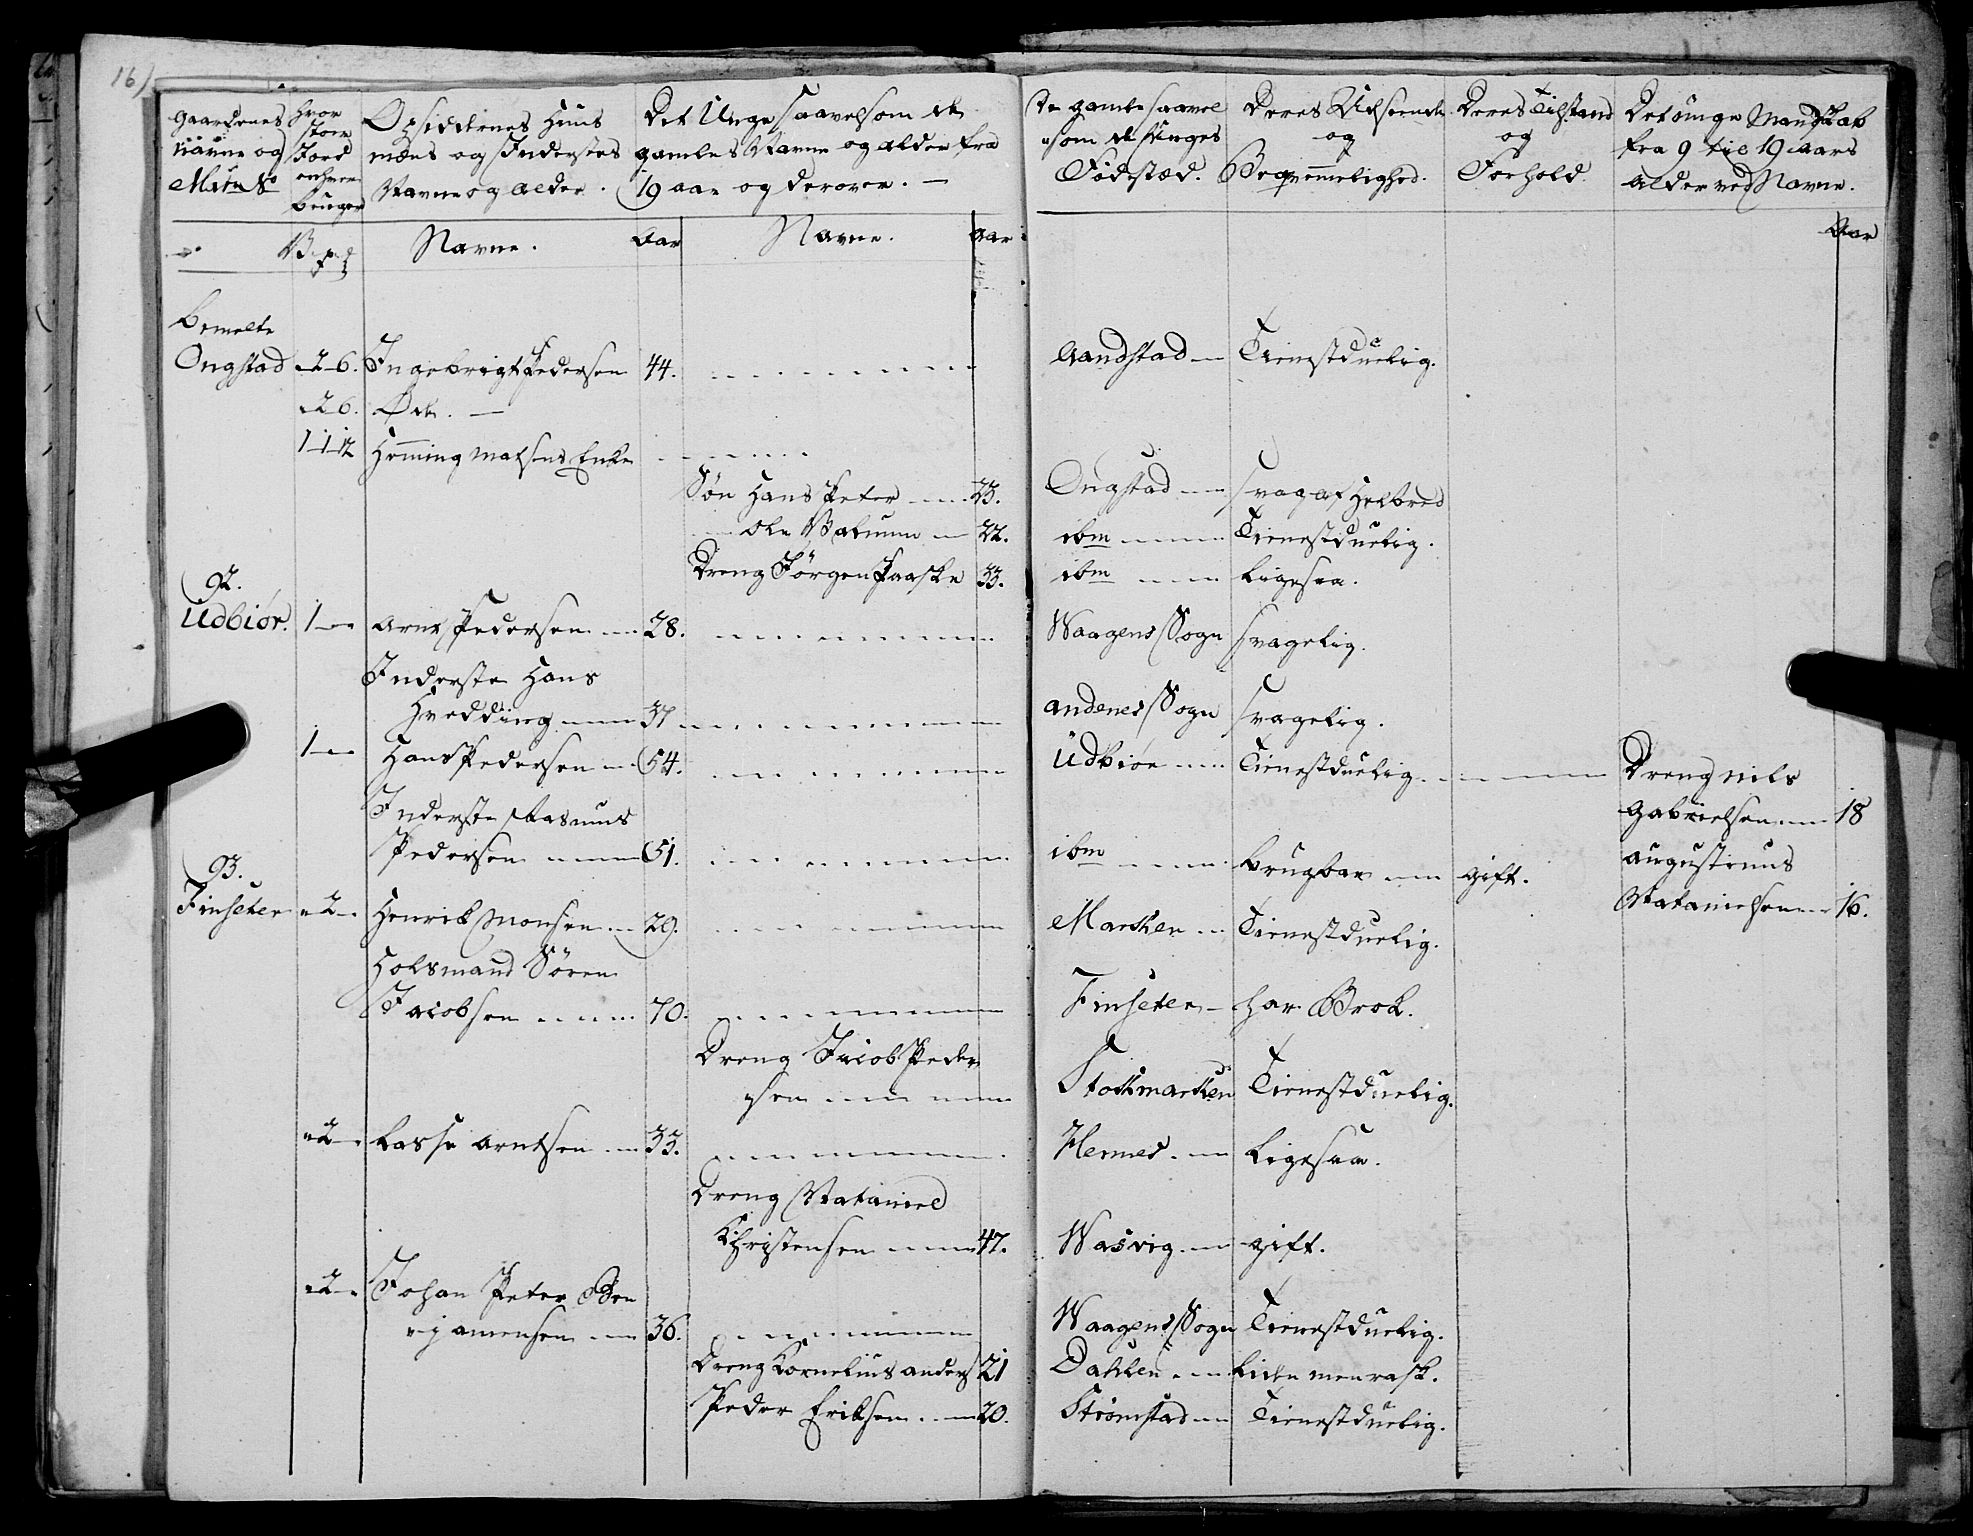 16)
Gaardenes
Navne og
Mtr: No
Hvor
stor
Jord
enhver
bruger
Opsiddernes Huus
mæns og Inderstes
Navne og alder.
Det Unge saavelsom de
gamles Navne og alder fra
19 aar og derover. —
De gamle saavel
som de Unges
Fødested.
Deres Udseende
og
Beqvemmelighed.
Deres Tilstand
og
Forhold
Det unge Mandskab
fra 9 til 19 aars
alder ved Navne.
Navne. Aar Navne. Aar Aar
Bemelte
Ongstad 2 6. Ingebrigt Pedersen 44. Aandstad Tienestduelig.
2 6. Ode. —
1 1 12 Heming Matsens Enke
Søn Hans Peter 23. Ongstad svag af Helbred
Ole Watuum 22. ibm Tienestduelig.
Dreng Jørgen Paaske 33. ibm Ligesaa.
92.
Udbiør. 1 Arne Pedersen 28. Waagens Sogn svagelig.
Inderste Hans
Hvedding 37 Andenes Sogn svagelig.
1 Hans Pedersen 54. Udbiør Tienestduelig Dreng Nils
Gabrielsen 18
Inderste Rasmus
Pedersen 51. ibm brugbar gift.
Augustinus
Nataniels­en 16.
93.
Finseter 2 Henrik Monsen 29. Marken Tienestduelig.
Holsmand Sören
Jacobsen 70. Finseter har Brok.
Dreng Jacob Peder
sen Stokmarken Tienestduelig.
2 Lasse Arntsen 33. Hennes Ligesaa.
Dreng Nataniel
Christensen 47. Wasvig gift.
2 Johan Peter Ben
jamensen 36. Waagens Sogn Tienestduelig.
Dreng Kornelius Anders 21 Dahlen liden men rask.
Peder Eriksen 20. Strømstad Tienestduelig.